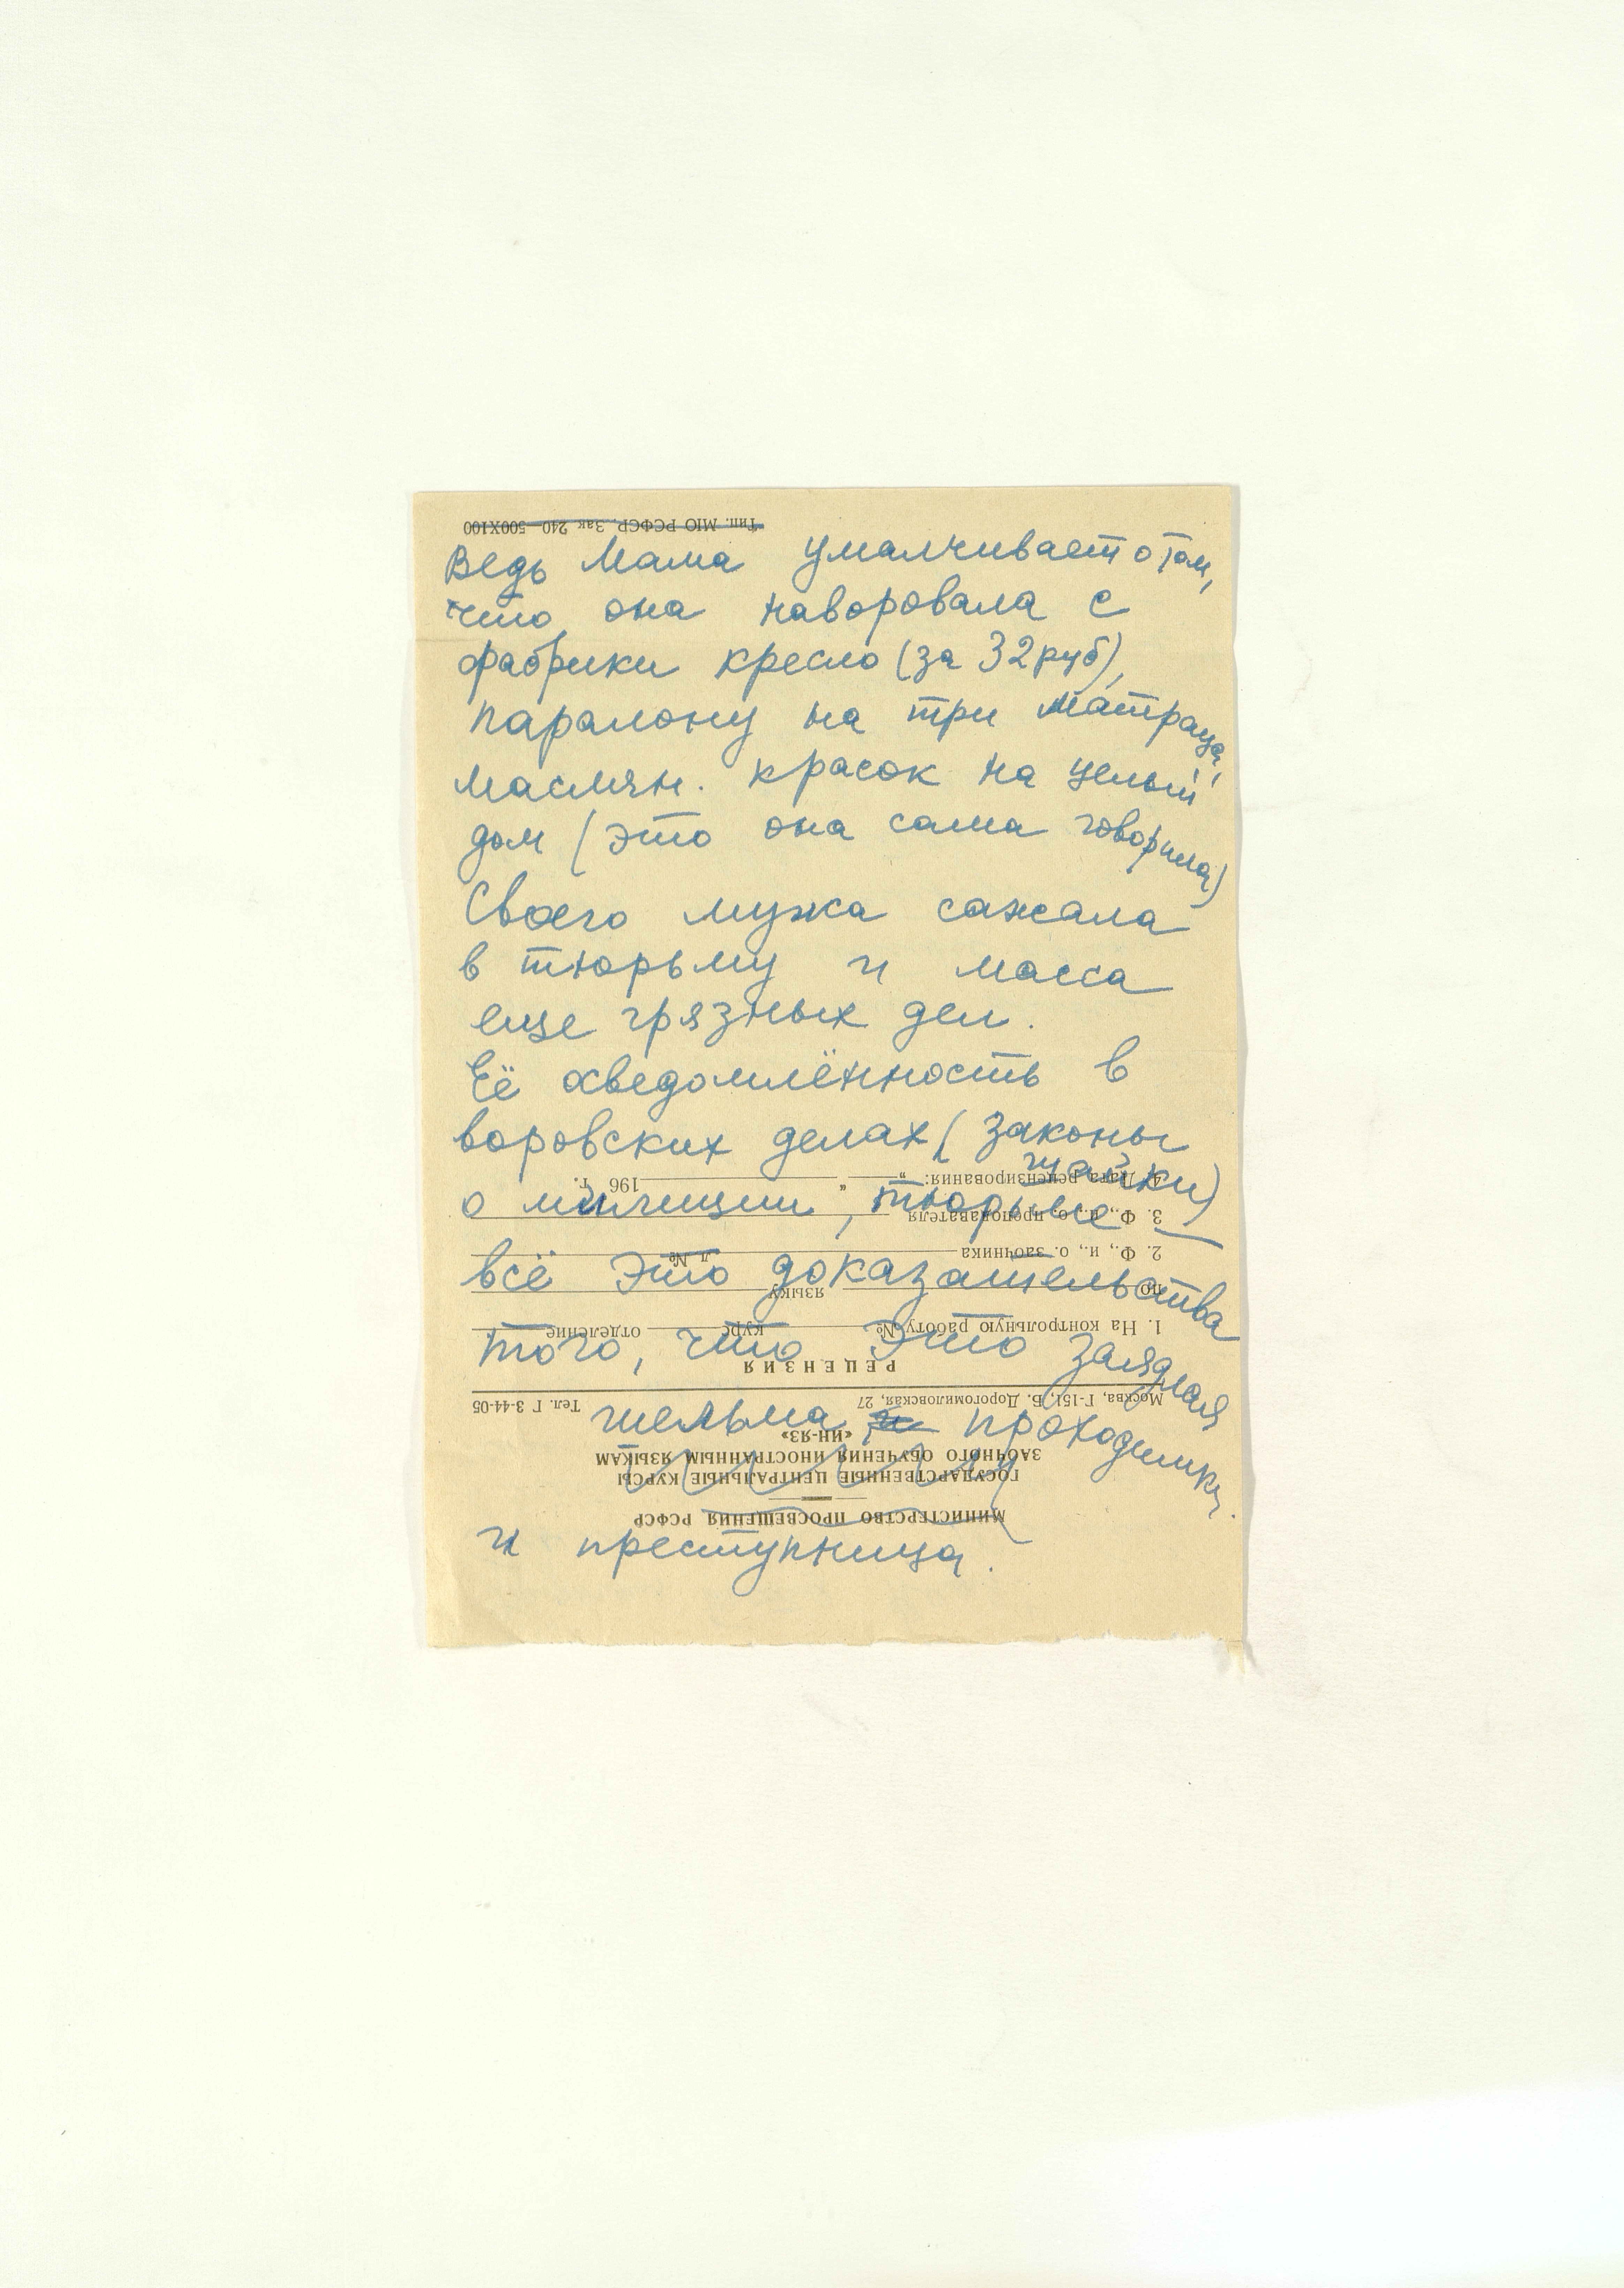 Тип. МІО РСФСР, Зак 240—500X100
Ведь Мама умалчивает о том,
что она наворовала с
фабрики кресло (за 32 руб),
паралону на три матраца,
маслян. красок на целый
дом (это она сама говорила)
Своего мужа сажала
в тюрьму и масса
еще грязных дел.
Её осведомлённость в
воровских делах (законы
шайки)
о милиции, тюрьме —
всё это доказательства
того, что это заядлая
шельма проходимка.
и преступница.
МИНИСТЕРСТВО ПРОСВЕЩЕНИЯ РСФСР
ГОСУДАРСТВЕННЫЕ ЦЕНТРАЛЬНЫЕ КУРСЫ
ЗАОЧНОГО ОБУЧЕНИЯ ИНОСТРАННЫМ ЯЗЫКАМ
«ИН-ЯЗ»
Москва, Г-151, Б. Дорогомиловская, 27 Тел. Г 3-44-05
РЕЦЕНЗИЯ
1. На контрольную работу № курс отделение
по языку
2. Ф., и., о. заочника л №
3. Ф., и., о. преподавателя
4. Дата рецензирования: „ “ 196 г.